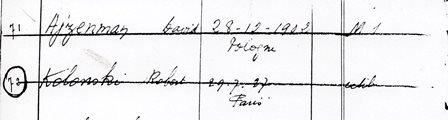 71 Ajzenman David 28-12-1902 M 1
Pologne
72 Kolonski Robert 29.7.27 célib
Paris